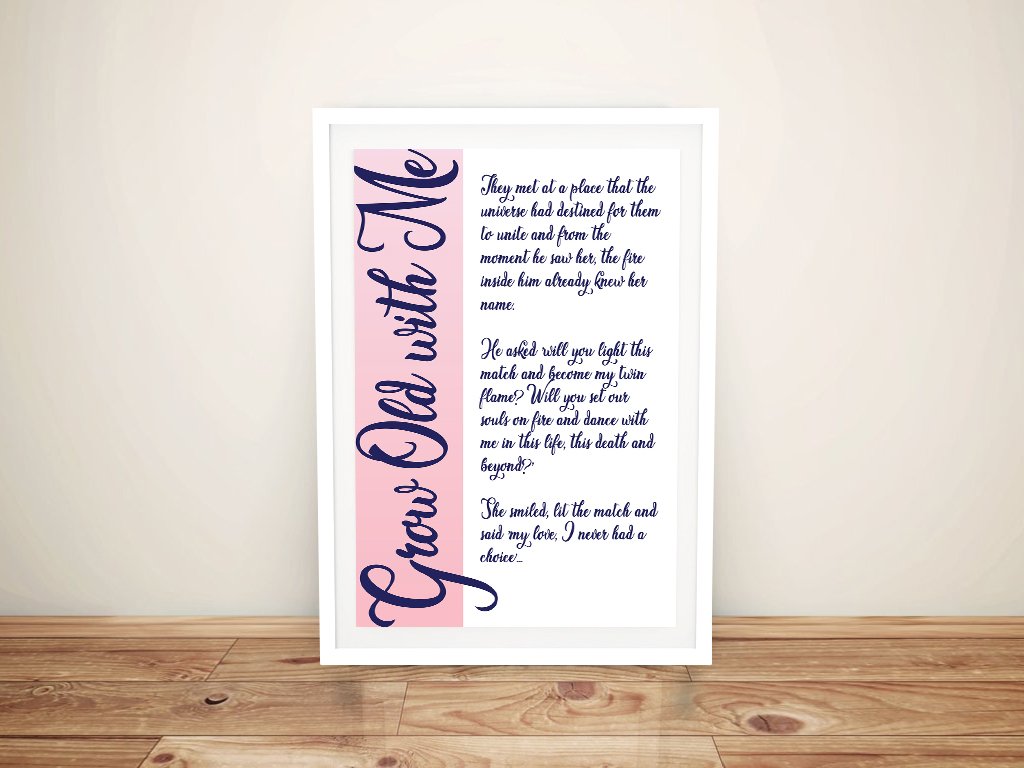 Grow Old with Me
They met at a place that the
universe had destined for them
to unite and from the
moment he saw her, the fire
inside him already knew her
name.
He asked will you light this
match and become my twin
flame? Will you set our
souls on fire and dance with
me in this life, this death and
beyond?'
She smiled, lit the match and
said my love, I never had a
choice'...